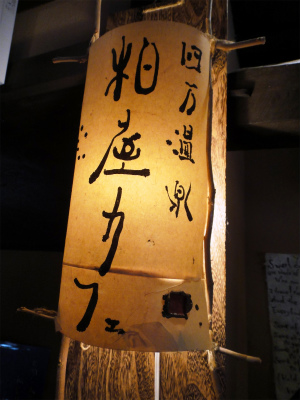 四万温泉
柏屋カフェ